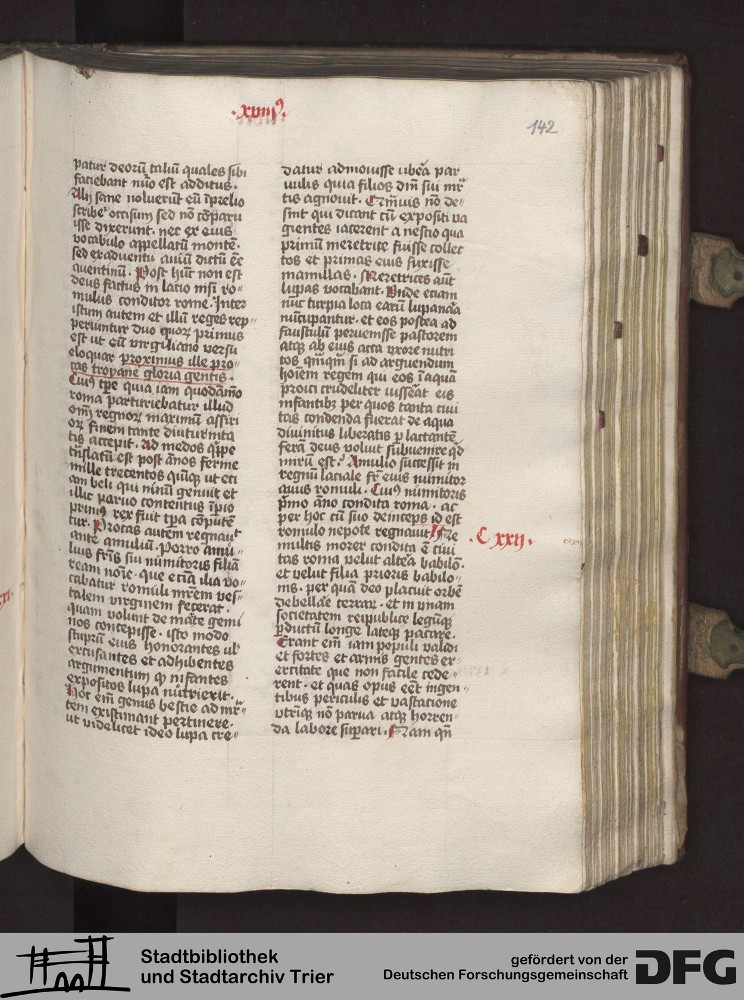 ·xviijꝰ·
142
patur deorū taliū quales sibi
faciebant nūo est additus·
Alij sane noluerūt eū ī prelio
scribe᷑ occisum sed nō cōparu
isse dixerunt· nec ex eius
vocabulo appellatū montē·
sed ex aduentu auiū dictū ēē
auentinū· Post hūc non est
deus factus in latio nisi ro-
mulus conditor rome· Inter
istum autem et illū reges rep-
periuntur duo quoꝝ primus
est ut eū virgiliano versu
eloquar proximus ille pro-
cas troyane gloria gentis·
Cuiꝰ tp̄e quia iam quodāmo
roma parturiebatur illud
om̄ regnoꝝ maximū assiri
oꝝ finem tante diuturnita
tis accepit· Ad medos qͥppe
tn̄slatū est post ānos ferme
mille trecentos quīqꝫ ut eci
am beli qui ninū genuit et
illic paruo contentus īpio
primꝰ rex fuit tꝑa cōputē
tur· Procas autem regnauit
ante amuliū· Porro amu-
lius fr̄is sui numitoris filiā
ream noīe· que eciā ilia vo-
cabatur romuli mr̄em ves-
talem virginem fecerat·
quam volunt de marte gemi
nos concepisse· isto modo
stuprū eius honorantes ul᷑
excusantes et adhibentes
argumentum ꝙ īfantes
expositos lupa nutrierit·
Hoc em̄ genus bestie ad mr̄-
tem existimant pertinere·
ut videlicet ideo lupa cre-
datur admouisse ubera par
uulis quia filios dn̄i sui mr̄
tis agnouit· Quīuis nō de-
sint qui dicant cū expositi va
gientes iacerent a nescio qua
primū meretrice fuisse collec
tos et primas eius suxisse
mamillas· Meretrices aūt
lupas vocabant· Unde etiam
nūc turpia loca earū lupanāa
nūcupantur· et eos postea ad
faustulū peruenisse pastorem
atqꝫ ab eius acca vxore nutri
tos qm̄qm̄ si ad arguendum
hoiem regem qui eos ī aquā
proici crudeliter iusserat eis
infantibꝫ per quos tanta ciui
tas condenda fuerat de aqua
diuinitus liberatis ꝑ lactantē
ferā deus voluit subuenire qͥd
mirū est? Amulio successit in
regnū laciale fr̄ eius numitor
auus romuli· Cuiꝰ numitoris
pͥmo āno condita roma· ac
per hoc cū suo deinceps id est
romulo nepote regnauit Ne
multis morer condita ē ciui
tas roma velut altēa babilō·
et velut filia prioris babilo-
nis· per quā deo placuit orbē
debellare terraꝝ· et in vnam
societatem reipublice legūqꝫ
ꝑductū longe lateqꝫ pacare·
Erant em̄ iam populi validi
et fortes et armis gentes ex-
ercitate que non facile cede-
rent· et quas opus eēt ingen-
tibus periculis et vastatione
utriqꝫ nō parua atqꝫ horren-
da labore suꝑari· Nam qn̄
·Cxxij·
Stadtbibliothek
und Stadtarchiv Trier
gefördert von der
Deutschen Forschungsgemeinschaft
DFG